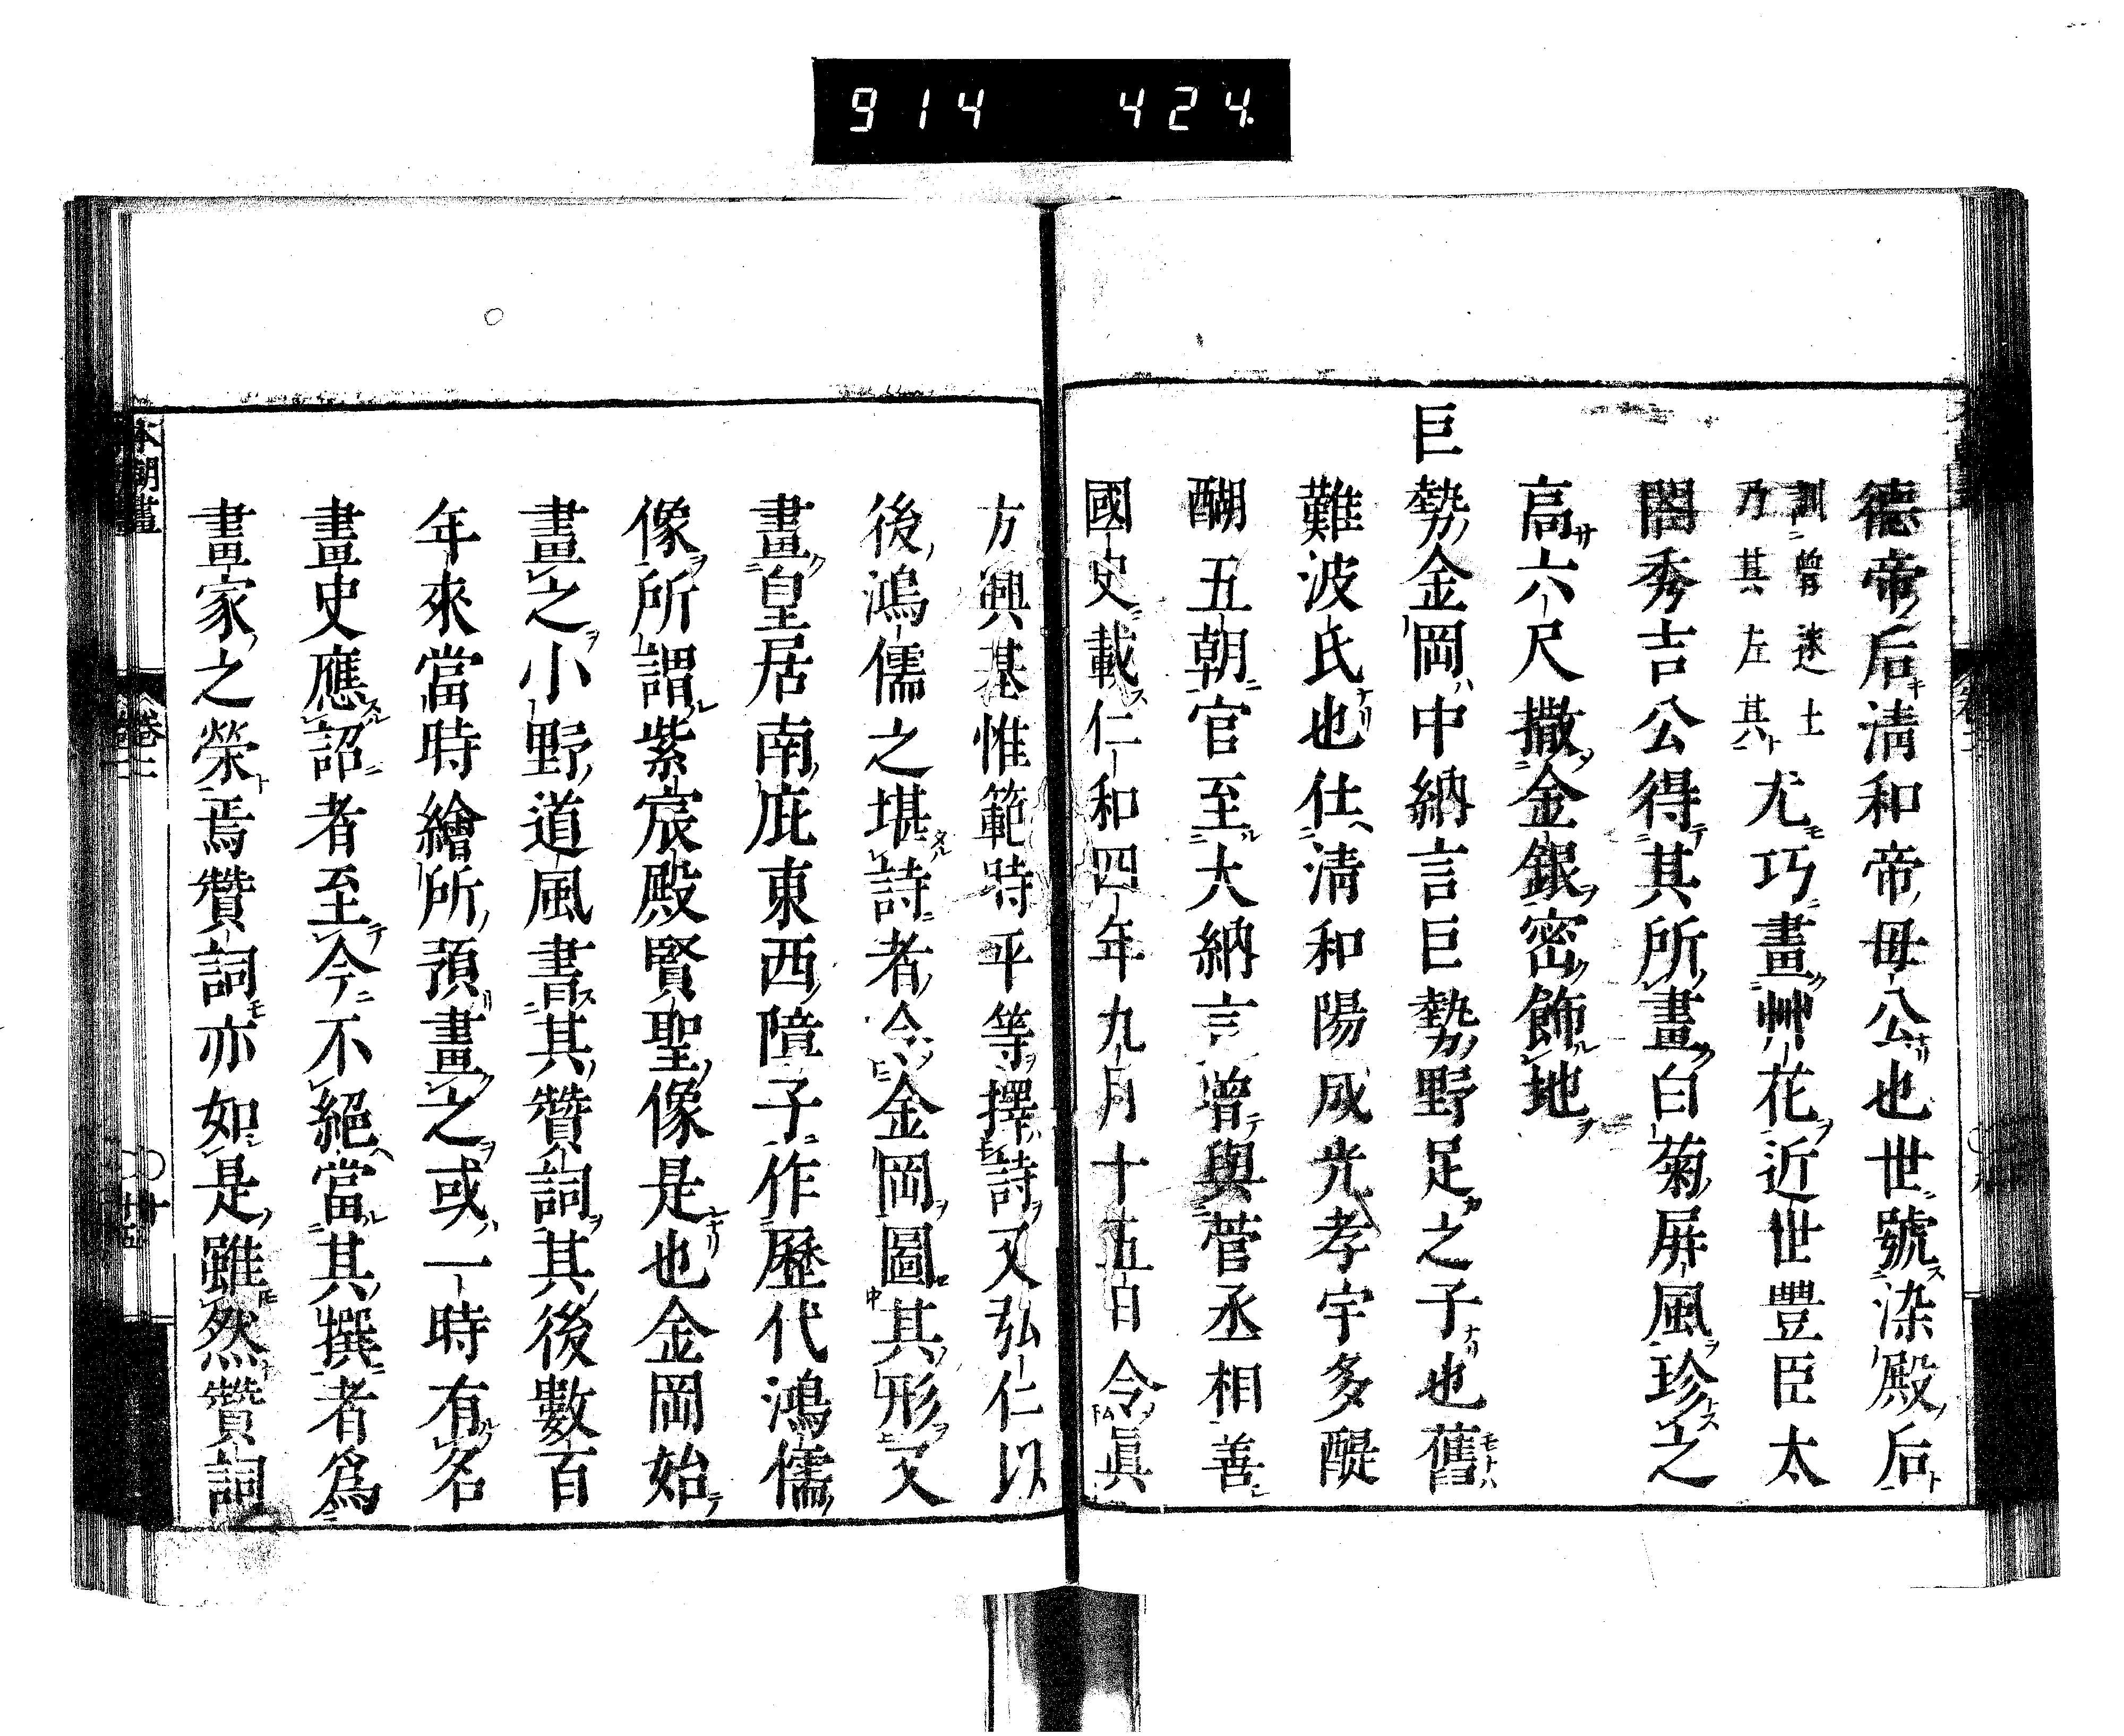 914 424
德帝后清和帝母公也世號染殿后
訓曾遂士
乃其左其尤巧畫艸花近世豐臣太
閤秀吉公得其所畫白菊屏風珍之
高六尺撒金銀密飾地
巨勢金岡中納言巨勢野足之子也舊
難波氏也仕清和陽成光孝宇多醍
醐五朝官至大納言嘗與菅丞相善
國史載仁和四年九月十五日令眞
方興基惟範時平等擇詩又弘仁以
後鴻儒之堪詩者令金岡圖其形又
畫皇居南庇東西障子作歷代鴻儒
像所謂紫宸殿賢聖像是也金岡始
畫之小野道風書其贊詞其後數百
年來當時繪所預畫之或一時有名
畫史應詔者至今不絕當其撰者爲
畫家之榮焉贊詞亦如是雖然贊詞
本朝畫
卷二
十